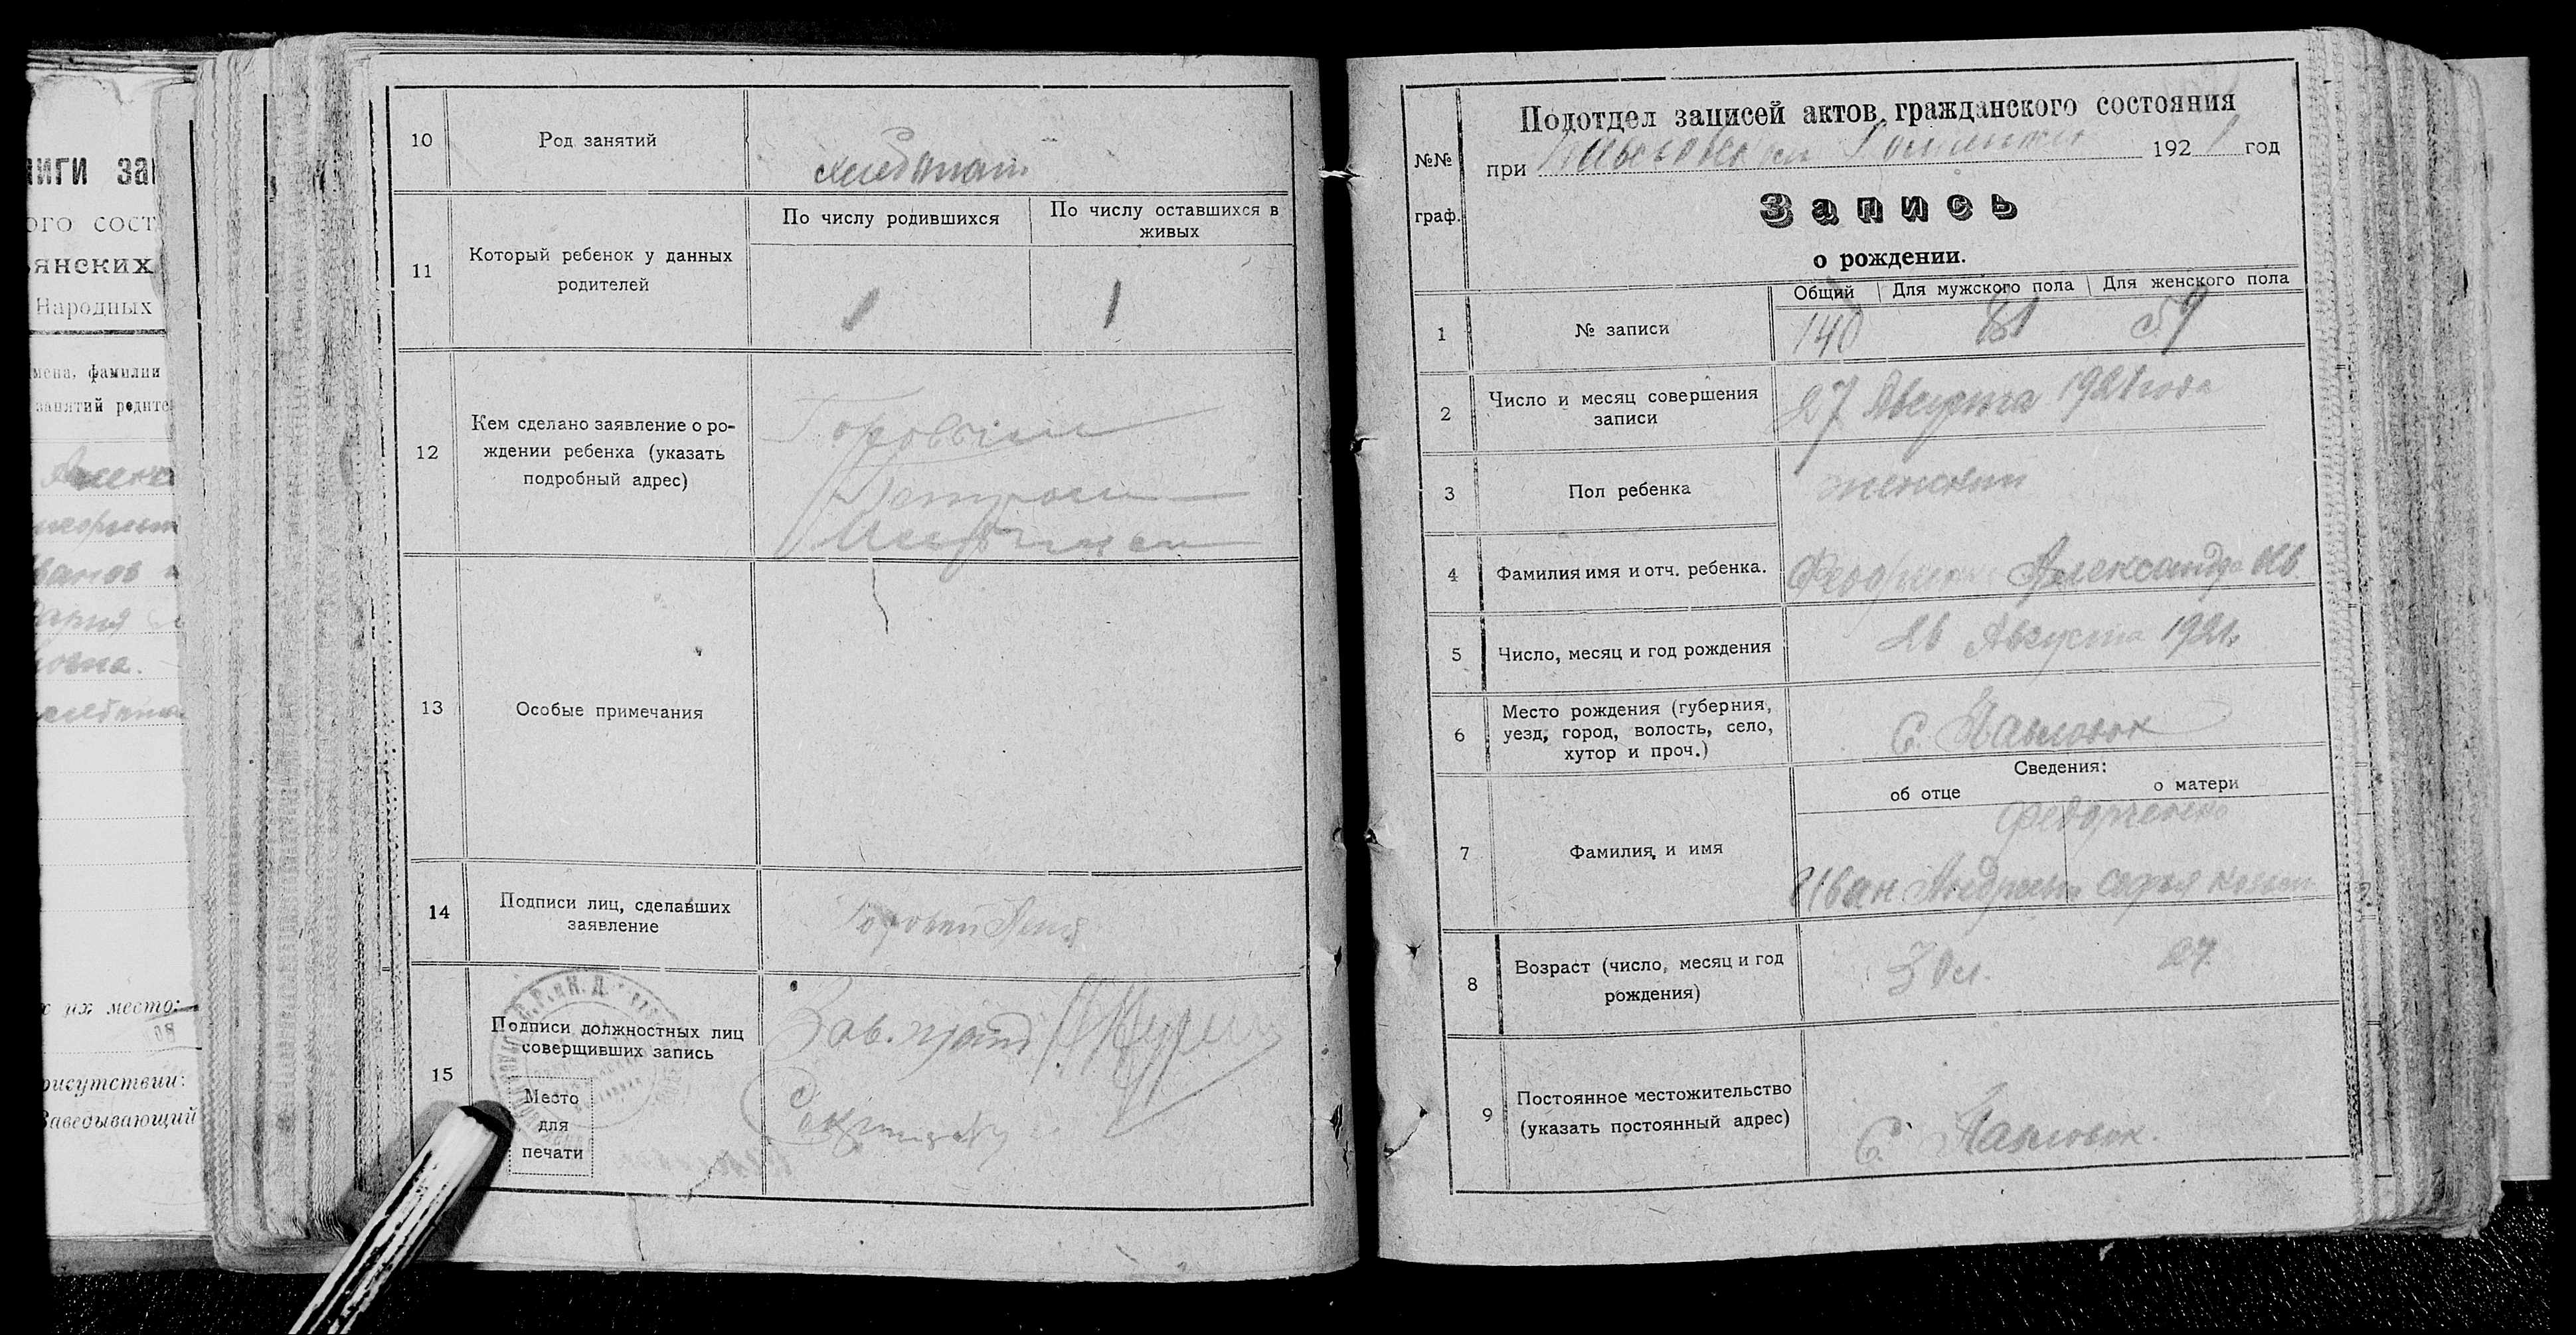 ниги за
ого сост
янских
Народных
мена, фамилии
занятий родите
Алекс
ванов
рисутствии:
Заведывающий
х их место:
10
Род занятий
хлебопаш.
11
Который ребенок у данных
родителей
По числу родившихся
По числу оставшихся в
живых
1
1
12
Кем сделано заявление о ро-
ждении ребенка (указать
подробный адрес)
Горовым
Петром
13
Особые примечания
14
Подписи лиц, сделавших
заявление
Горовый
15
Подписи должностных лиц
совершивших запись
Место
для
печати
Зав.
Секретарь
№№
граф.
Подотдел записей актов гражданского состояния
при 1921 год
Запись
о рождении.
1
№ записи
Общий
Для мужского пола
Для женского пола
140
81
59
2
Число и месяц совершения
записи
27 Августа 1921 года
3
Пол ребенка
женский
4
Фамилия имя и отч. ребенка.
Александра Ив
5
Число, месяц и год рождения
26 Августа 1921г
6
Место рождения (губерния,
уезд, город, волость, село,
хутор и проч.)
С. Павловок
Сведения:
об отце
о матери
7
Фамилия, и имя
Федоренко
Иван Андреев
Софья
8
Возраст (число, месяц и год
рождения)
30 л.
27.
9
Постоянное местожительство
(указать постоянный адрес)
С. Павловок.